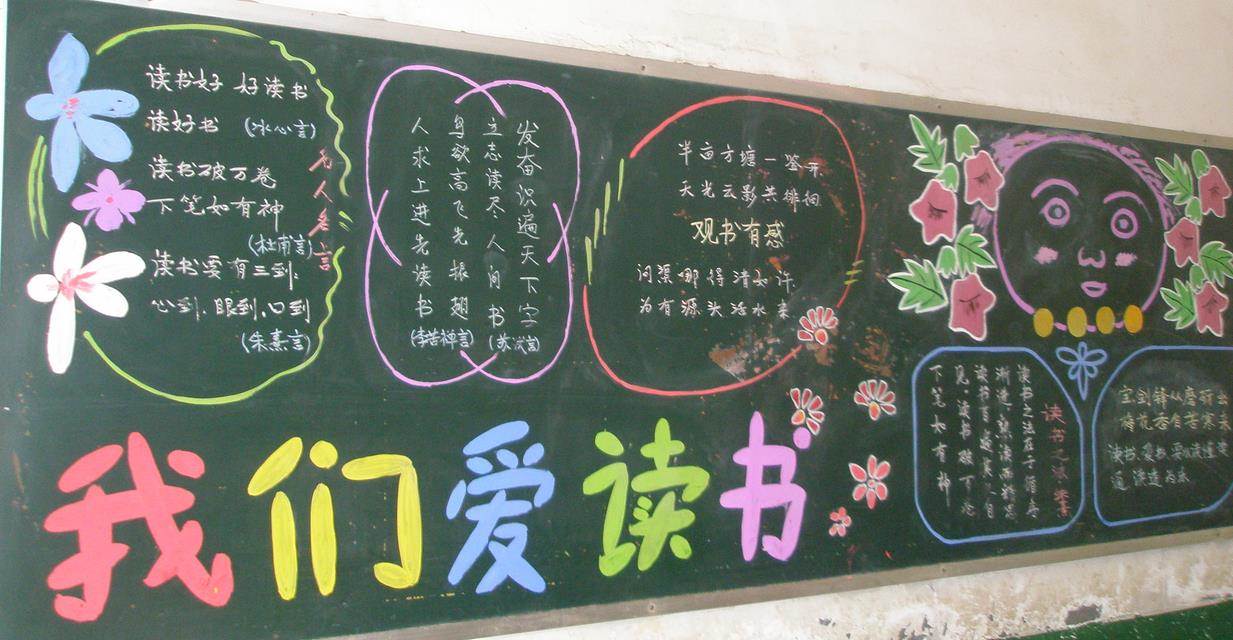 读书好 好读书
读好书 (冰心言)
读书破万卷
下笔如有神
(杜甫言)
读书要有三到:
心到.眼到.口到
(朱熹言)
名人名言
发奋识遍天下字
立志读尽人间书
(苏轼言)
鸟欲高飞先振翅
人求上进先读书
(李苦禅言)
半亩方塘一鉴开
天光云影共徘徊
观书有感
问渠哪得清如许
为有源头活水来
读书之法
读书之法在于循序
渐进 熟读而精思
读书百遍其义自
见 读书破万卷
下笔如有神
宝剑锋从磨砺出
梅花香自苦寒来
读书.爱书
我们爱读书